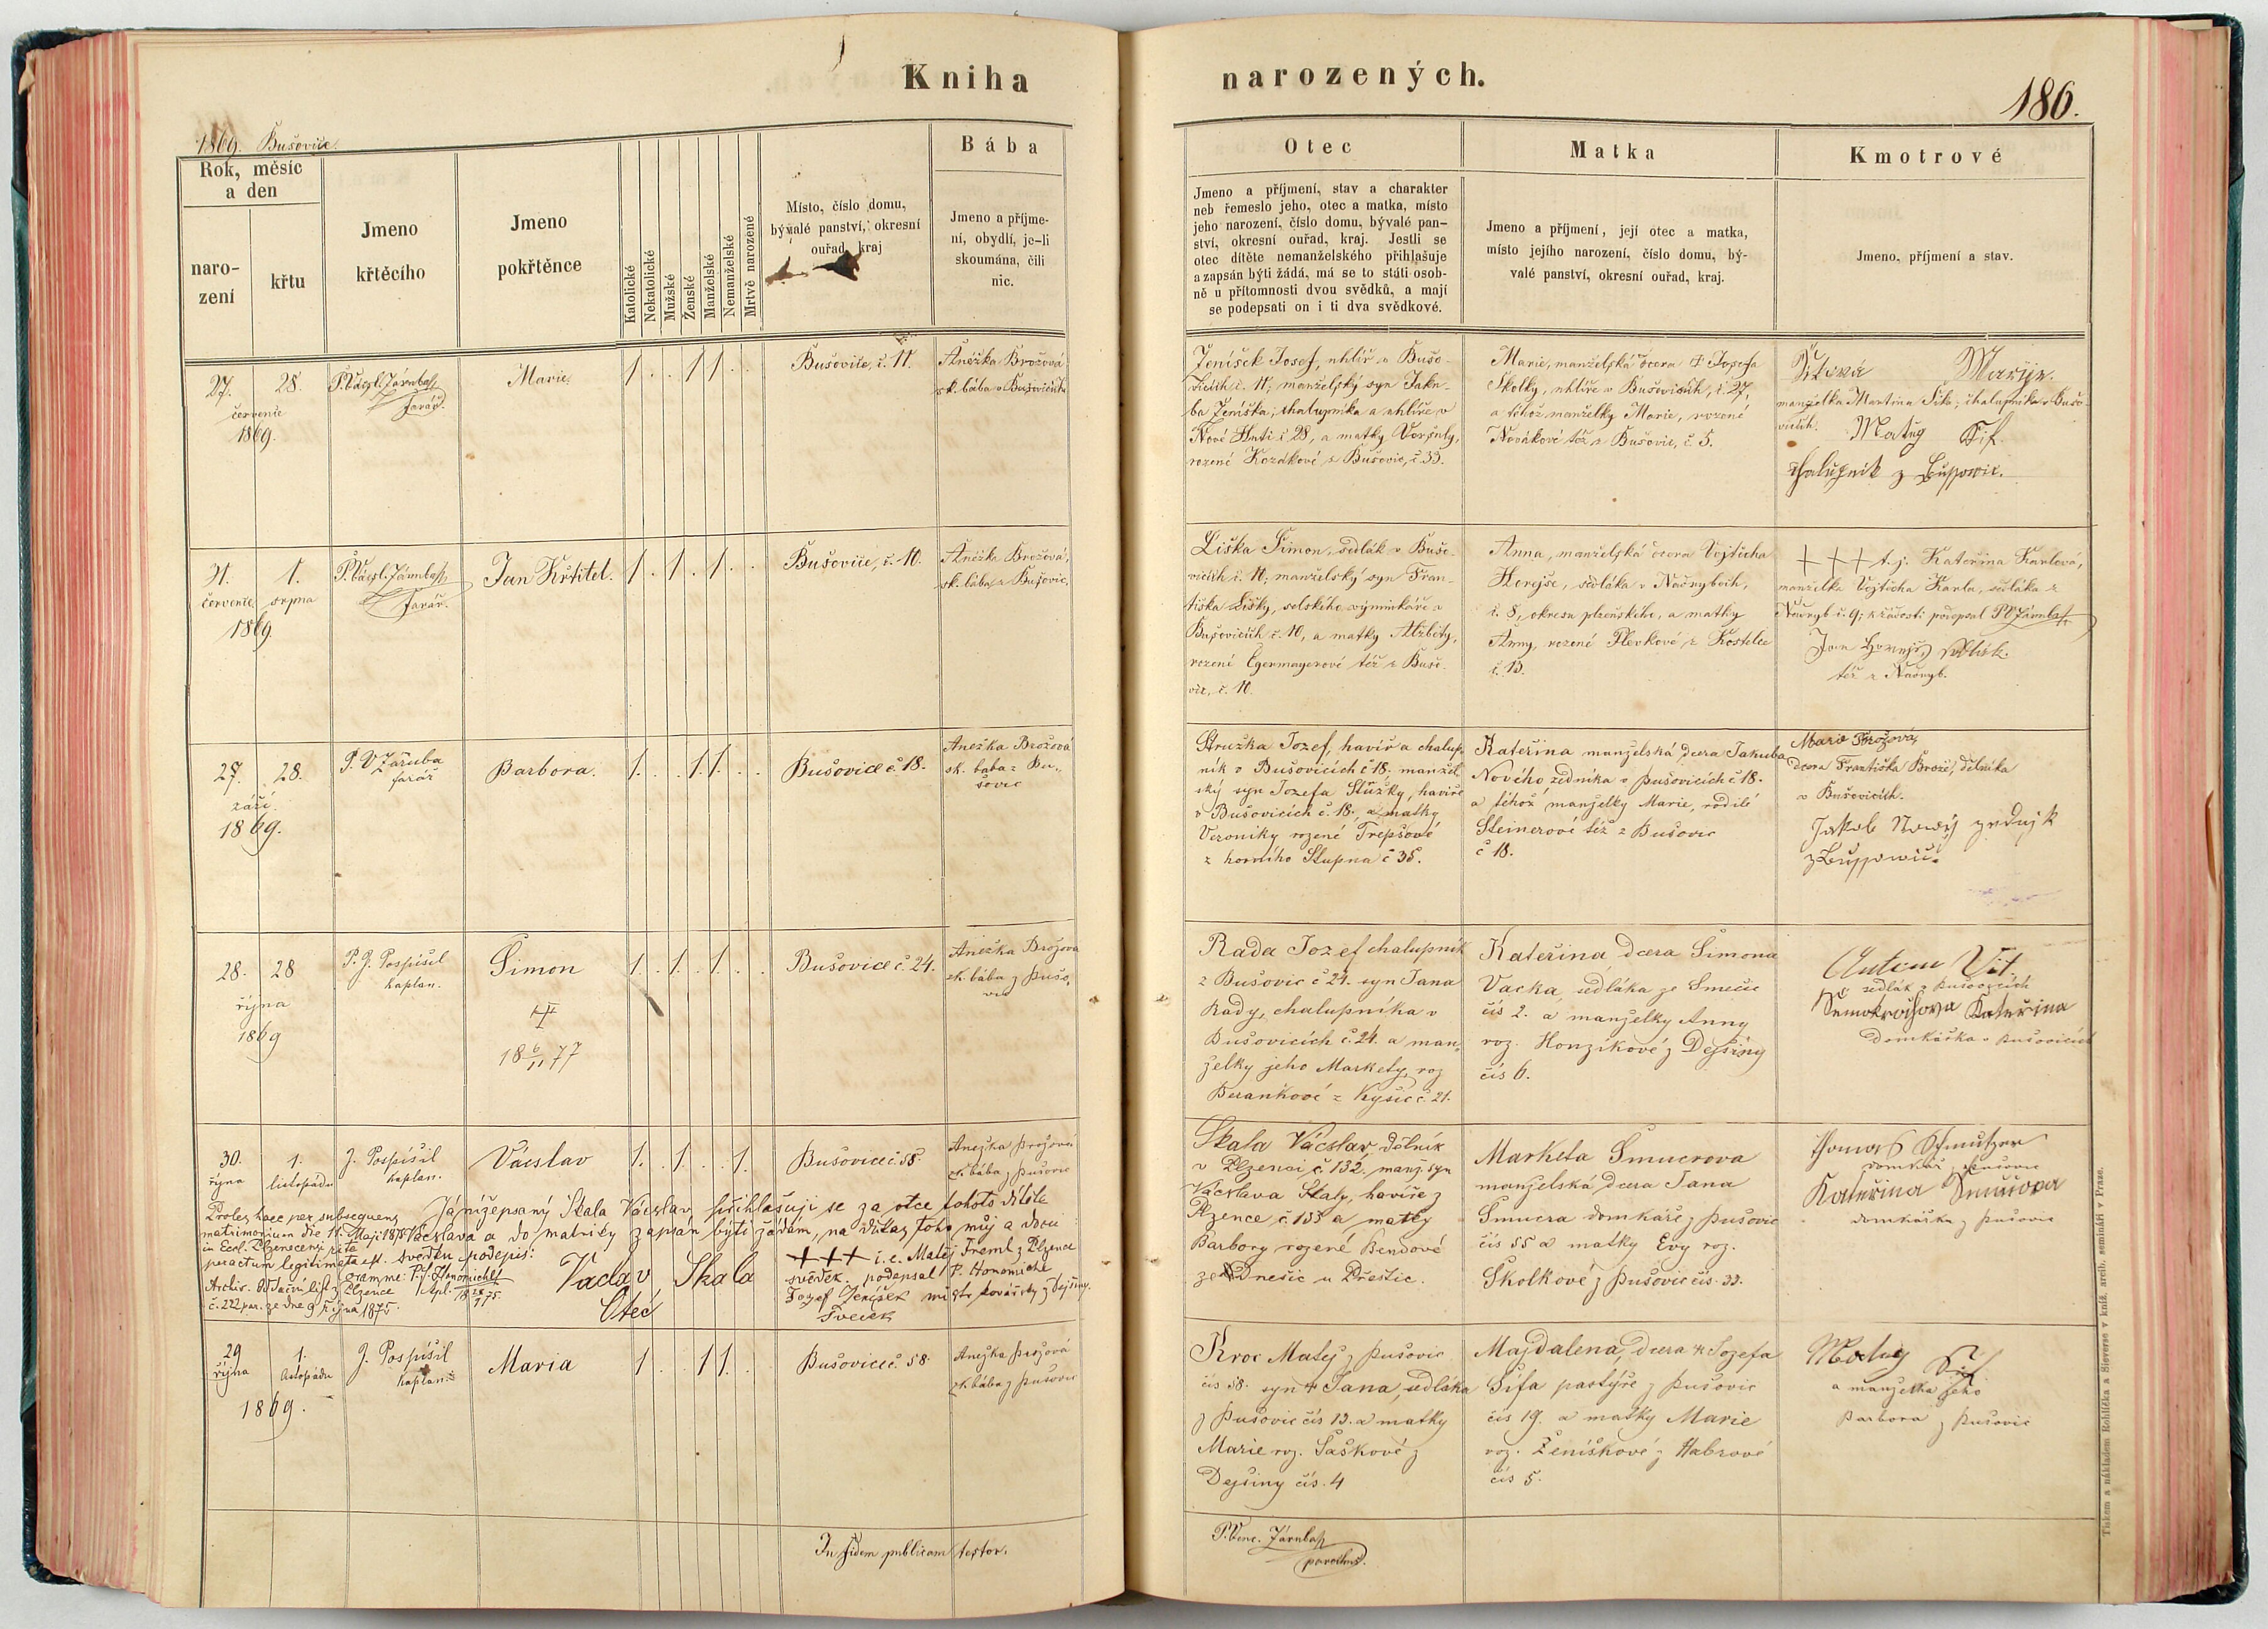 Kniha narozených.
186.
1869. Bušovice.
Rok, měsíc
a den
naro-
zení
křtu
Jmeno
křtěcího
Jmeno
pokřtěnce
Katolické
Nekatolické
Mužské
Ženské
Manželské
Nemanželské
Mrtvě narozené
Místo, číslo domu,
bývalé panství, okresní
ouřad, kraj
Bába
Jmeno a příjme-
ní, obydlí, je-li
skoumána, čili
nic.
Otec
Jmeno a příjmení, stav a charakter
neb řemeslo jeho, otec a matka, místo
jeho narození, číslo domu, bývalé pan-
ství, okresní ouřad, kraj. Jestli se
otec dítěte nemanželského přihlašuje
a zapsán býti žádá, má se to státi osob-
ně u přítomnosti dvou svědků, a mají
se podepsati on i ti dva svědkové.
Matka
Jmeno a příjmení, její otec a matka,
místo jejího narození, číslo domu, bý-
valé panství, okresní ouřad, kraj.
Kmotrové
Jmeno, příjmení a stav.
27. 28.
července
1869.
farář.
Marie.
1 . . 1 1 . .
Bušovice, č. 11.
Anežka Brožová
zk. bába v Bušovicích
Ženíšek Josef, uhlíř v Bušo-
vicích č. 11; manželský syn Jaku-
ba Ženíška, chalupníka a uhlíře v
Nové Huti č. 28, a matky Voršuly,
rozené Kozákové z Bušovic, č. 33.
Marie, manželská dcera † Josefa
Školky, uhlíře v Bušovicích, č. 27,
a téhož manželky Marie, rozené
Novákové též z Bušovic, č. 5.
Marye.
manželka Martina Šifa, chalupníka v Bušo-
vicích. Matug Šif.
chalupnik z Bussowic.
31. 1.
července srpna
1869.
farář.
Jan Křtitel.
1 . 1 . 1 . .
Bušovice, č. 10.
Anežka Brožová,
zk. bába z Bušovic.
Liška Šimon, sedlák v Bušo-
vicích č. 10; manželský syn Fran-
tiška Lišky, selského výminkáře v
Bušovicích č. 10, a matky Alžběty,
rozené Egermayerové též z Bušo-
vic, č. 10.
Anna, manželská dcera Vojtěcha
Herejše, sedláka v Načnybech,
č. 8, okresu plzeňského, a matky
Anny, rozené Plevkové, z Kostelce
č. 13.
+++ t. j. Kateřina Karlová,
manželka Vojtěcha Karla, sedláka z
č. 9; k žádosti podepsal
Jan sedlák.
též z
27. 28.
září
1869.
P. V. Záruba
farář
Barbora.
1. . . 1. 1. . .
Bušovice č. 18.
Anežka Brožová
zk. bába z Bu-
šovic
Stružka Jozef, havíř a chalup-
ník v Bušovicích č 18. manžel-
ský syn Jozefa Stůžky, havíře
v Bušovicích č. 18., a matky
Veroniky rozené Trepšové
z horního Stupna č 35.
Kateřina manželská dcera Jakuba
Nového zedníka v Bušovicích č 18.
a téhož manželky Marie, rodilé
Steinerové též z Bušovic
č 18.
Marie Brožová,
dcera Františka Brože, dělníka
v Bušovicích.
Jakob Nowý zednjk
z Bussowic.
28. 28
října
1869
P. J. Pospíšil
kaplan.
Šimon
18 6/11 77
1. . 1. . 1. . .
Bušovice č. 24.
Anežka Brožova
zk. bába z Bušo-
vic
Rada Jozef chalupník
z Bušovic č 24. syn Jana
Rady, chalupníka v
Bušovicích č. 24. a man-
želky jeho Markety, roz
Beránkové z Kyšic č. 21.
Kateřina dcera Šimona
Vacka, sedláka ze Smečic
čís 2. a manželky Anny
roz. Honzíkové z Dejšiny
čís 6.
Vít.
sedlák v Bušovicích
Kateřina
domkářka v Bušovicích
30. 1.
října listopádu
J. Pospíšil
kaplan.
Vácslav
1. . 1. . . 1.
Bušovice č. 58.
Anežka Brožová
zk. bába z Bušovic
Skala Vácslav, dělník
v Plzenci, č. 132., manž. syn
Vácslava Skaly, havíře z
Plzence, č. 133 a matky
Barbory rozené Bendové
ze Dnešic u Přeštic.
Marketa Šmucrova
manželská dcera Jana
Šmucra domkáře z Bušovic
čís 55 a matky Evy roz.
Školkové z Bušovic čís. 33.
Thomas Schmutzer
domkář z Bušovic
Kateřina
domkářka z Bušovic
Proles haec per subsequens
matrimonium die 11. Maji 1875
in Eccl. Plzenecensi rite
peractum legitimata est.
Já nížepsaný Skala Vácslav přihlašuji se za otce tohoto dítěte
Vácslava a do matriky zapsán býti žádám, na důkaz toho můj a dvou
svědků podepis:
Vaclav Skala
Otec
+++ i. e. Matěj Treml z Plzence
svědek. podepsal P.
Jozef Ženíšek mistr kovářský z Dejšiny.
Svedek
č. 222 par. ze dne 9 října 1875.
29 1.
října listopádu
1869.
J. Pospíšil
kaplan.
Maria
1 . . 1 1. .
Bušovice č. 58.
Anežka Brožová
zk. bába z Bušovic
Kroc Matěj z Bušovic
čís 58. syn † Jana, sedláka
z Bušovic čís 13. a matky
Marie roz. Šaškové z
Dejšiny čís. 4
Majdalena, dcera † Jozefa
Šifa pastýře z Bušovic
čís 19. a matky Marie
roz. Ženíškové z Habrové
čís 5.
Matug Šif
a manželka jeho
Barbora z Bušovic
In fidem publicam testor.
parochus.
Tiskem a nákladem Rohlíčka a Sieverse v kníž. arcib. semináři v Praze.